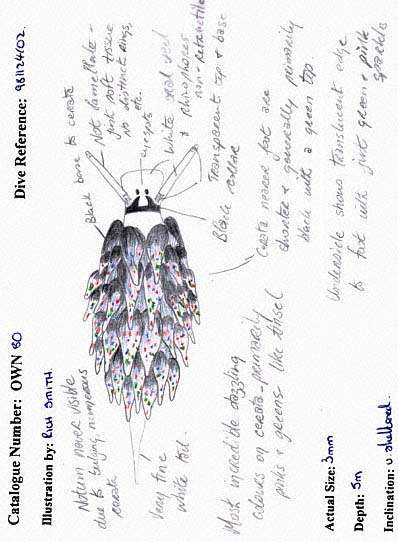 Catalogue Number: OWN 80
Dive Reference: 981124/02.
Illustration by: Rich Smith.
Notum never visible
due to bulging, numerous
cerata
Black base to cerata
Not lamellate -
just soft tissue,
no distinct rings,
etc.
eyespots
White oral veil
& rhinophores
non-retractile
Transparent tip & base
Black collar
Very fine
white tail.
Cerata nearer foot are
shorter & generally primarily
black with a green top
Most incredible dazzling
colours on cerata - primarily
pinks & greens like tinsel
Underside shows translucent edge
to foot with just green & pink
sparkles
Actual Size: 3mm
Depth: 5m
Inclination: v. sheltered.